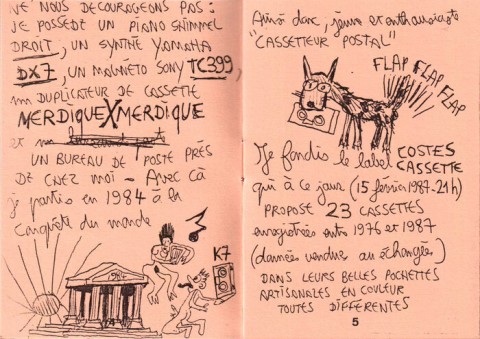 NE NOUS DECOURAGEONS PAS :
JE POSSEDE UN PIANO SHIMMEL
DROIT, UN SYNTHE YAMAHA
DX7, UN MAGNETO SONY TC399,
un DUPLICATEUR DE CASSETTE
MERDIQUEXMERDIQUE
et
UN BUREAU DE POSTE PRÈS
DE CHEZ MOI - AVEC CA
je partis en 1984 à la
Conquête du monde
K7
Ainsi donc, jeune et enthousiaste
"CASSETTEUR POSTAL"
FLAP FLAP FLAP
Je fondis le label COSTES
CASSETTE
qui à ce jour (15 février 1987-21h)
PROPOSE 23 CASSETTES
enregistrées entre 1976 et 1987
(données vendues ou échangées)
DANS LEURS BELLES POCHETTES
ARTISANALES EN COULEUR
TOUTES DIFFERENTES
5